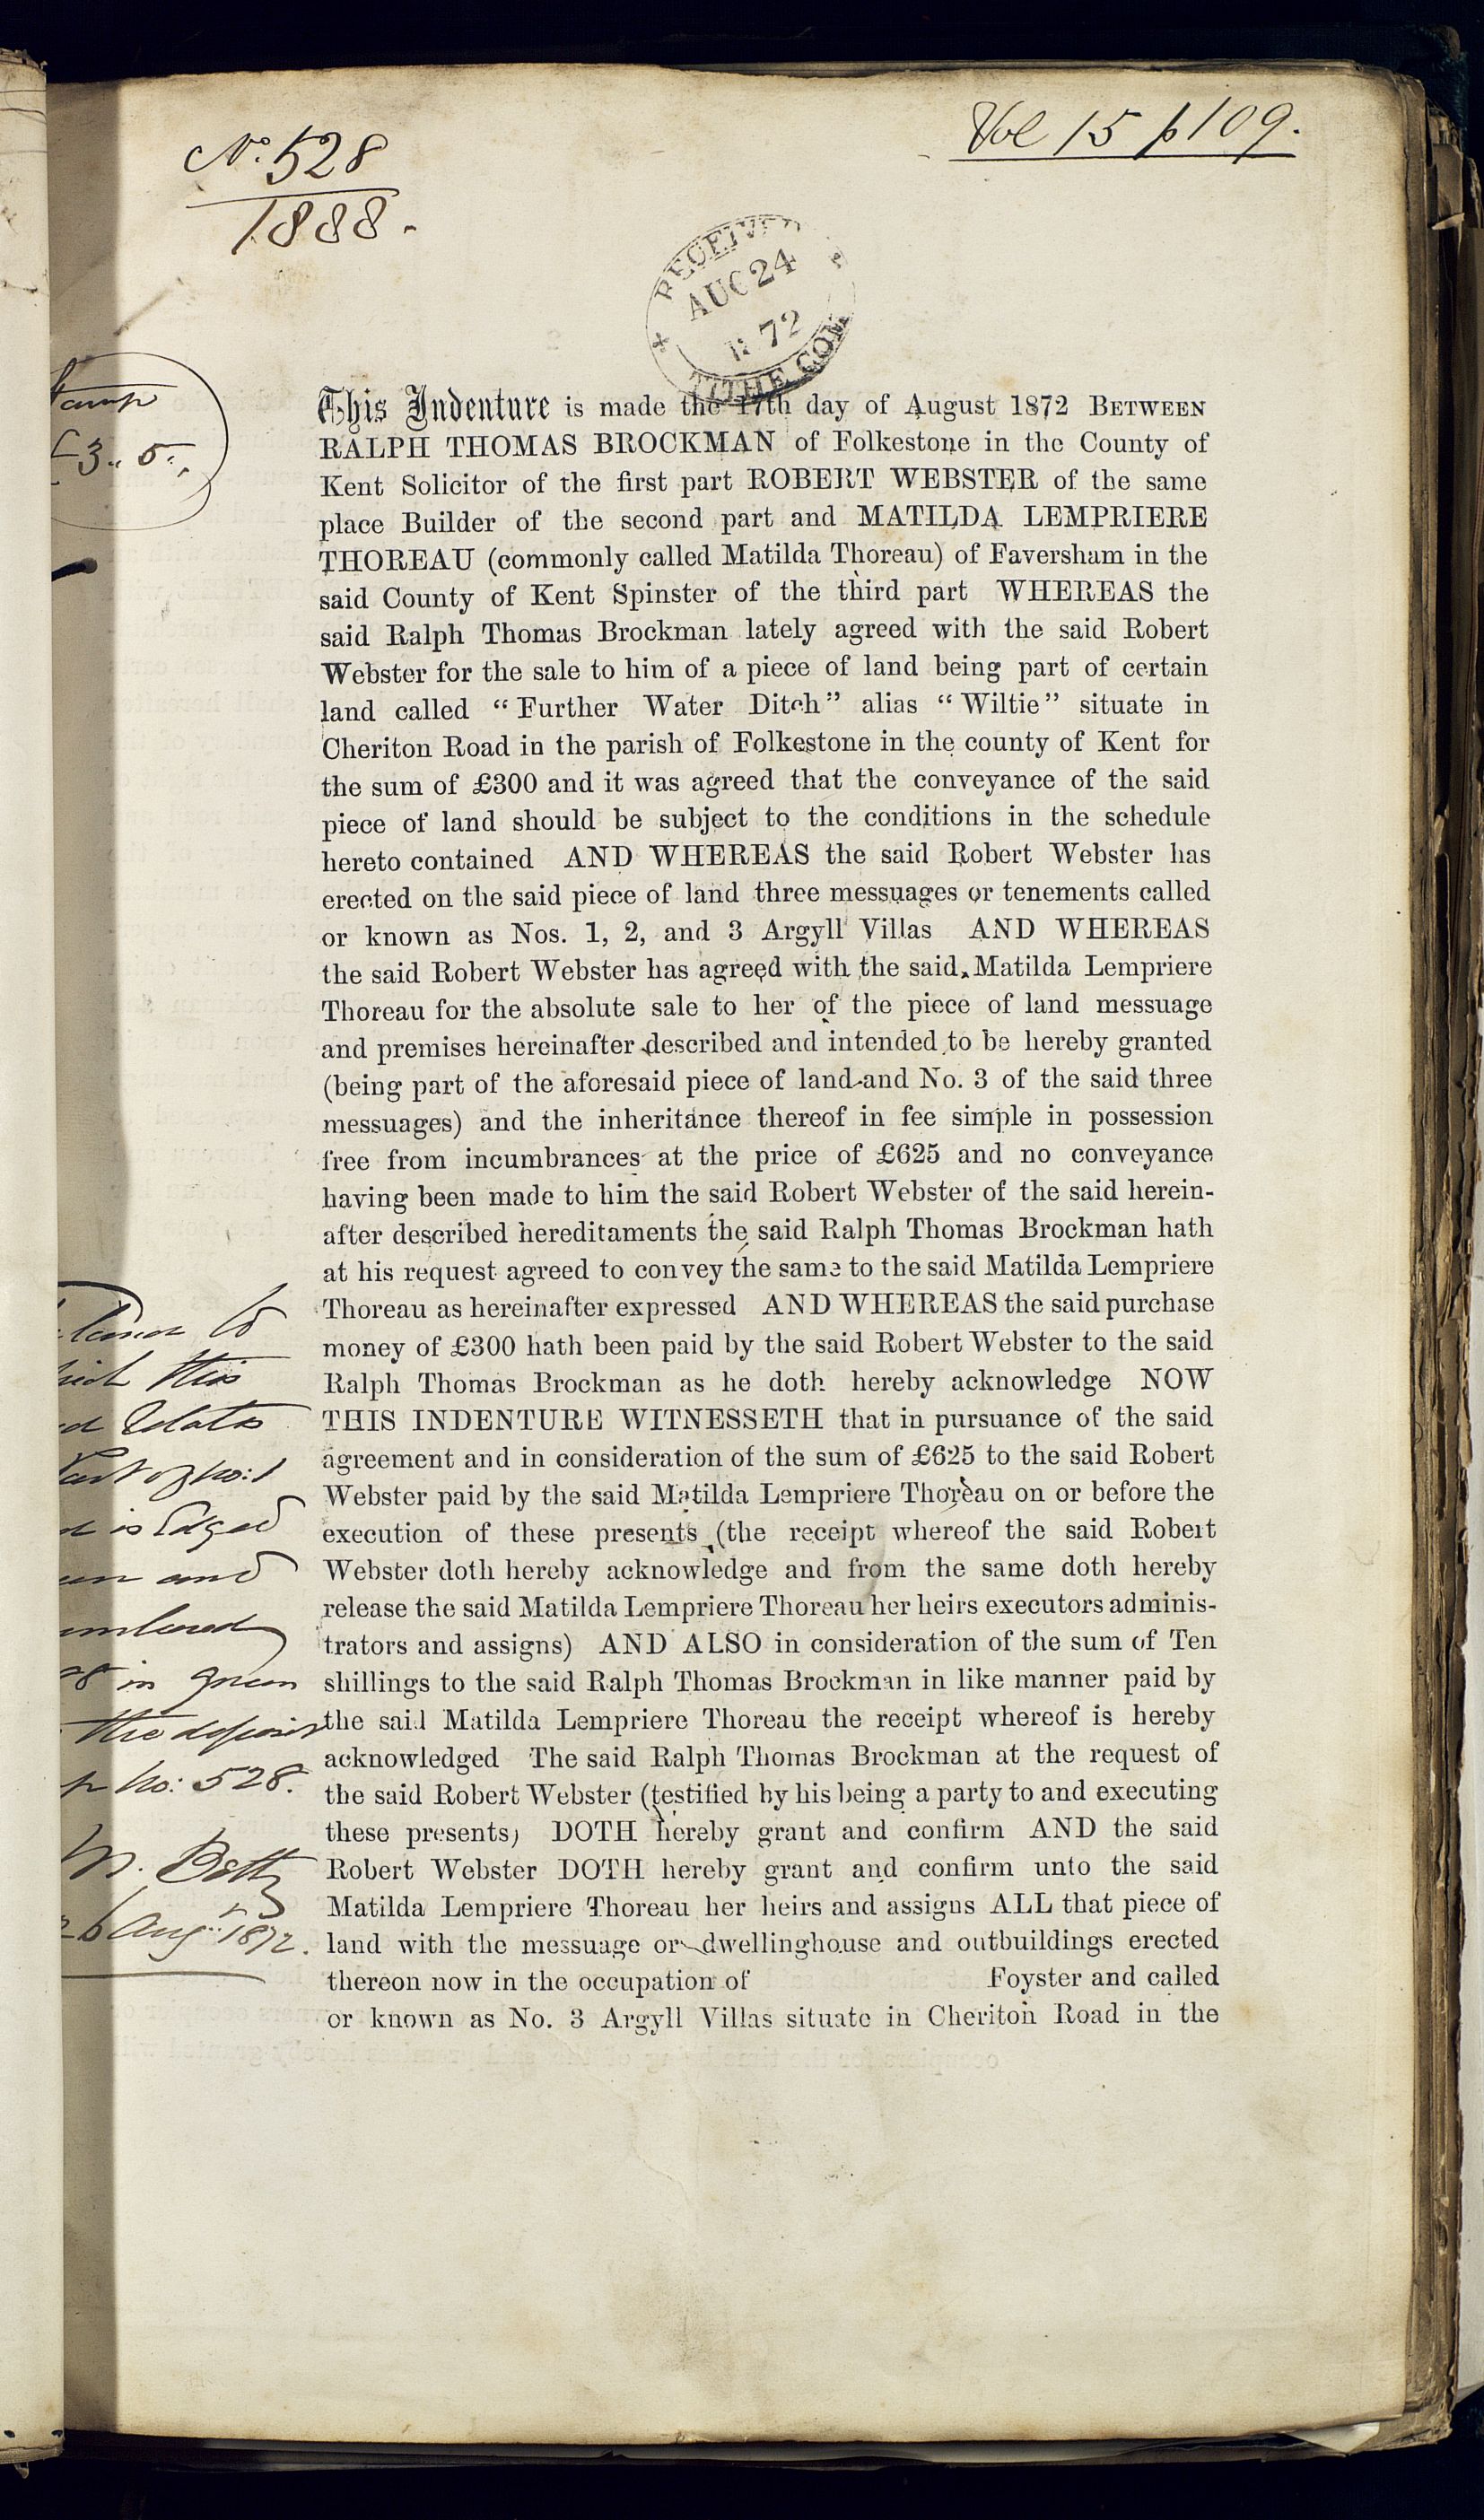 No. 528
1888.
Vol 15 p 109.
RECEIVED
AUG 24
1872
TITHE COM
Stamp
£3.. 5..
This Indenture is made the 17th day of August 1872 BETWEEN
RALPH THOMAS BROCKMAN of Folkestone in the County of
Kent Solicitor of the first part ROBERT WEBSTER of the same
place Builder of the second part and MATILDA LEMPRIERE
THOREAU (commonly called Matilda Thoreau) of Faversham in the
said County of Kent Spinster of the third part WHEREAS the
said Ralph Thomas Brockman lately agreed with the said Robert
Webster for the sale to him of a piece of land being part of certain
land called “Further Water Ditch” alias “Wiltie” situate in
Cheriton Road in the parish of Folkestone in the county of Kent for
the sum of £300 and it was agreed that the conveyance of the said
piece of land should be subject to the conditions in the schedule
hereto contained AND WHEREAS the said Robert Webster has
erected on the said piece of land three messuages or tenements called
or known as Nos. 1, 2, and 3 Argyll Villas AND WHEREAS
the said Robert Webster has agreed with the said Matilda Lempriere
Thoreau for the absolute sale to her of the piece of land messuage
and premises hereinafter described and intended to be hereby granted
(being part of the aforesaid piece of land and No. 3 of the said three
messuages) and the inheritance thereof in fee simple in possession
free from incumbrances at the price of £625 and no conveyance
having been made to him the said Robert Webster of the said herein-
after described hereditaments the said Ralph Thomas Brockman hath
at his request agreed to convey the same to the said Matilda Lempriere
Thoreau as hereinafter expressed AND WHEREAS the said purchase
money of £300 hath been paid by the said Robert Webster to the said
Ralph Thomas Brockman as he doth hereby acknowledge NOW
THIS INDENTURE WITNESSETH that in pursuance of the said
agreement and in consideration of the sum of £625 to the said Robert
Webster paid by the said Matilda Lempriere Thoreau on or before the
execution of these presents (the receipt whereof the said Robert
Webster doth hereby acknowledge and from the same doth hereby
release the said Matilda Lempriere Thoreau her heirs executors adminis-
trators and assigns) AND ALSO in consideration of the sum of Ten
shillings to the said Ralph Thomas Brockman in like manner paid by
the said Matilda Lempriere Thoreau the receipt whereof is hereby
acknowledged The said Ralph Thomas Brockman at the request of
the said Robert Webster (testified by his being a party to and executing
these presents) DOTH hereby grant and confirm AND the said
Robert Webster DOTH hereby grant and confirm unto the said
Matilda Lempriere Thoreau her heirs and assigns ALL that piece of
land with the messuage or dwellinghouse and outbuildings erected
thereon now in the occupation of Foyster and called
or known as No. 3 Argyll Villas situate in Cheriton Road in the
to
this
Relates
Part of No: 1
is Edged
and
in green
the deposit
No: 528.
26 Augt. 1872.